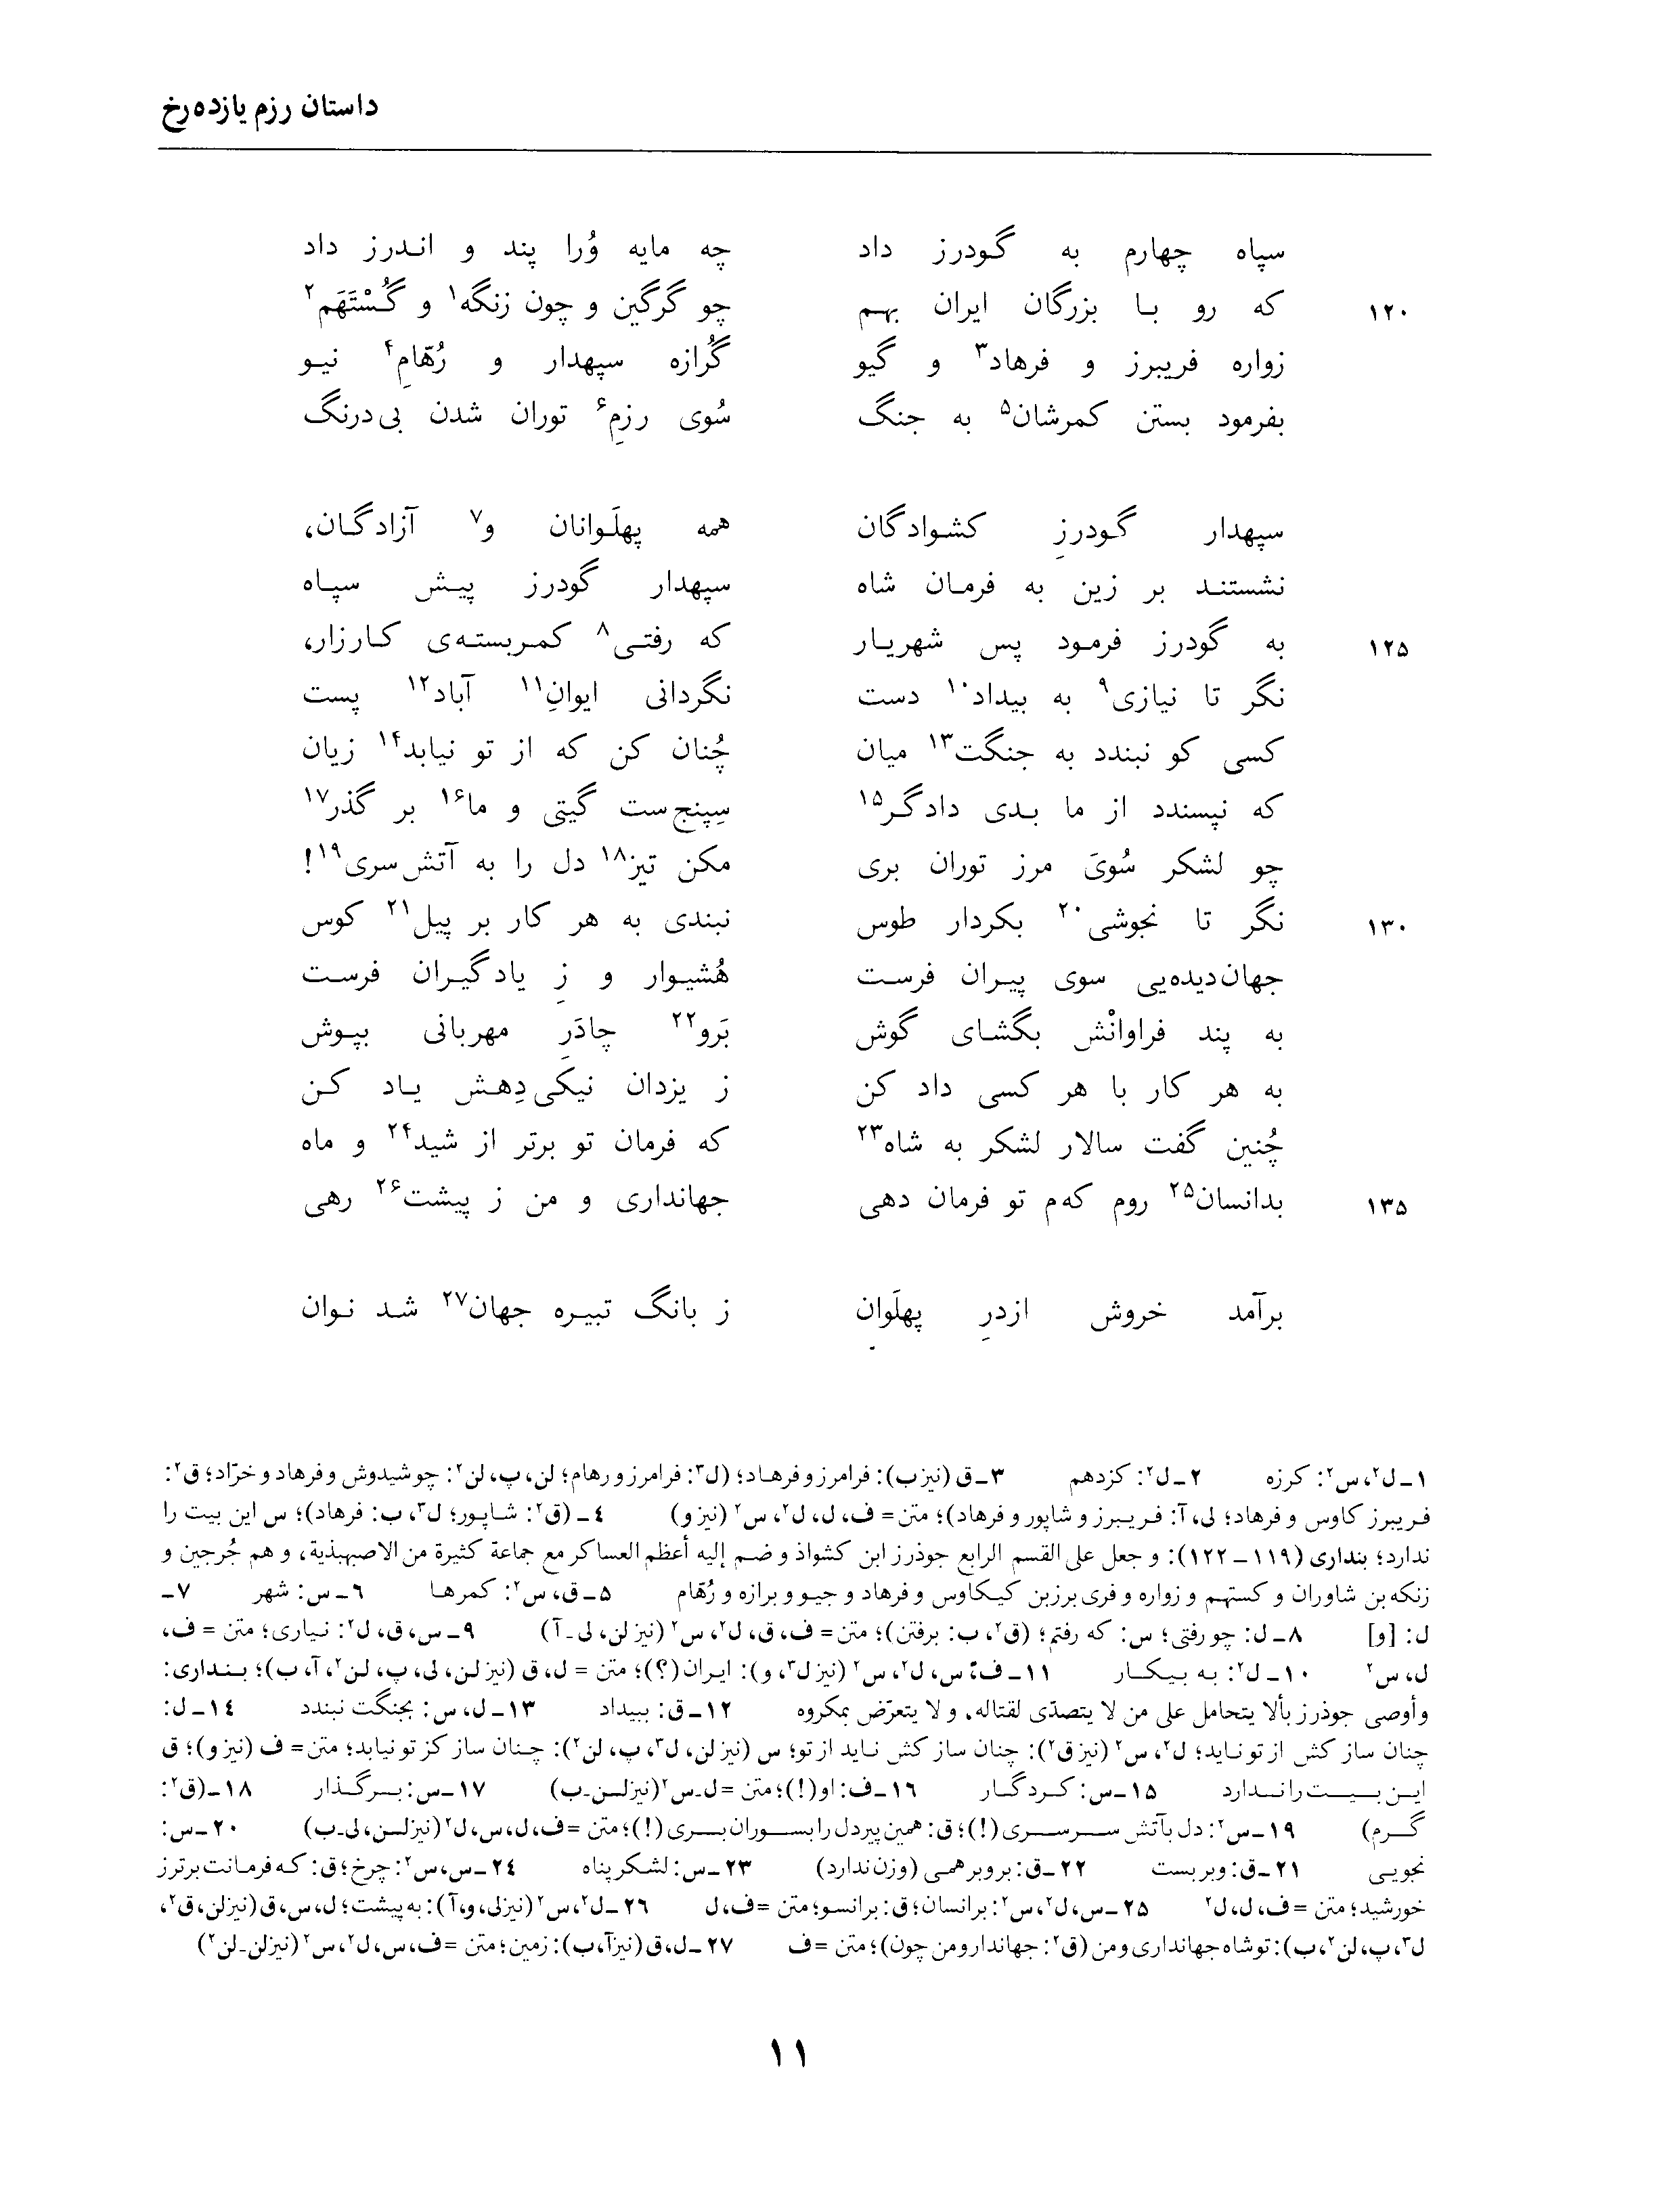 داستان رزم یازده‌رخ
سپاه چهارم به گودرز داد چه مایه وُرا پند و اندرز داد
۱۲۰ که رو با بزرگان ایران بهم چو گرگین و چون زنگه۱ و گُسْتَهَم۲
زواره فریبرز و فرهاد۳ و گیو گُرازه سپهدار و رُهّامِ۴ نیو
بفرمود بستن کمرشان۵ به جنگ سُوی رزمِ۶ توران شدن بی‌درنگ
سپهدار گودرزِ کشوادگان همه پهلَوانان و۷ آزادگان،
نشستند بر زین به فرمان شاه سپهدار گودرز پیش سپاه
۱۲۵ به گودرز فرمود پس شهریار که رفتی۸ کمربسته‌ی کارزار،
نگر تا نیازی۹ به بیداد۱۰ دست نگردانی ایوانِ۱۱ آباد۱۲ پست
کسی کو نبندد به جنگت۱۳ میان چُنان کن که از تو نیابد۱۴ زیان
که نپسندد از ما بدی دادگر۱۵ سِپنج‌ست گیتی و ما۱۶ بر گذر۱۷
چو لشکر سُویَ مرز توران بری مکن تیز۱۸ دل را به آتش‌سری۱۹!
۱۳۰ نگر تا نجوشی۲۰ بکردار طوس نبندی به هر کار بر پیل۲۱ کوس
جهان‌دیده‌یی سوی پیران فرست هُشیوار و زِ یادگیران فرست
به پند فراوانْش بگشای گوش بَرو۲۲ چادَرِ مهربانی بپوش
به هر کار با هر کسی داد کن ز یزدان نیکی‌دِهش یاد کن
چُنین گفت سالار لشکر به شاه۲۳ که فرمان تو برتر از شید۲۴ و ماه
۱۳۵ بدانسان۲۵ روم که‌م تو فرمان دهی جهانداری و من ز پیشت۲۶ رهی
برآمد خروش ازدرِ پهلَوان ز بانگ تبیره جهان۲۷ شد نوان
۱ــ ل۲، س۲: کرزه ۲ــ ل۲: کزدهم ۳ــ ق (نیز ب): فرامرز و فرهاد؛ (ل۳: فرامرز و رهام؛ لن، پ، لن۲: چو شیدوش و فرهاد و خرّاد؛ ق۲:
فریبرز کاوس و فرهاد؛ لی، آ: فریبرز و شاپور و فرهاد)؛ متن= ف، ل، ل۲، س۲ (نیز و) ٤ــ (ق۲: شاپور؛ ل۳، ب: فرهاد)؛ س این بیت را
ندارد؛ بنداری (۱۱۹ ــ ۱۲۲): و جعل علی القسم الرابع جوذرز ابن کشواذ و ضم إلیه أعظم العساکر مع جماعة کثیرة من الاصبهبذیة، و هم جُرجین و
زنکه بن شاوران و کستهم و زواره و فری برزبن کیکاوس و فرهاد و جیو و برازه و رُهّام ۵ــ ق، س۲: کمرها ۶ــ س: شهر ۷ــ
ل: [و] ۸ــ ل: چو رفتی؛ س: که رفتم؛ (ق۲، ب: برفتن)؛ متن= ف، ق، ل۲، س۲ (نیز لن، لی ـ آ) ۹ــ س، ق، ل۲: نیاری؛ متن = ف،
ل، س۲ ۱۰ــ ل۲: به بیکار ۱۱ــ ف، س، ل۲، س۲ (نیز ل۳، و): ایران (؟)؛ متن = ل، ق (نیز لن، لی، پ، لن۲، آ، ب)؛ بنداری:
وأوصی جوذرز بألا یتحامل علی من لا یتصدّی لقتاله، و لا یتعرّض بمکروه ۱۲ــ ق: ببیداد ۱۳ــ ل، س: بجنگت نبندد ۱٤ــ ل:
چنان ساز کش از تو ناید؛ ل۲، س۲ (نیز ق۲): چنان ساز کش ناید از تو؛ س (نیز لن، ل۳، پ، لن۲): چنان ساز کز تو نیابد؛ متن= ف (نیز و)؛ ق
این بیت را ندارد ۱۵ــ س: کردگار ۱۶ــ ف: او (!)؛ متن = ل ـ س۲ (نیز لن ـ ب) ۱۷ــ س: برگذار ۱۸ــ (ق۲:
گرم) ۱۹ــ س۲: دل بآتش سرسری (!)؛ ق: همین پیر دل را بسوران بری (!)؛ متن = ف، ل، س، ل۲ (نیز لن، لی ـ ب) ۲۰ــ س:
نجویی ۲۱ــ ق: وبربست ۲۲ــ ق: بروبر همی (وزن ندارد) ۲۳ــ س: لشکر پناه ۲٤ــ س، س۲: چرخ؛ ق: که فرمانت برتر ز
خورشید؛ متن = ف، ل، ل۲ ۲۵ــ س، ل۲، س۲: برانسان؛ ق: برانسو؛ متن = ف، ل ۲۶ــ ل۲، س۲ (نیز لی، و، آ): به پیشت؛ ل، س، ق (نیز لن، ق۲،
ل۳، پ، لن۲، ب): تو شاه جهانداری و من (ق۲: جهاندار و من چون)؛ متن = ف ۲۷ــ ل، ق (نیز آ، ب): زمین؛ متن = ف، س، ل۲، س۲ (نیز لن ـ لن۲)
۱۱